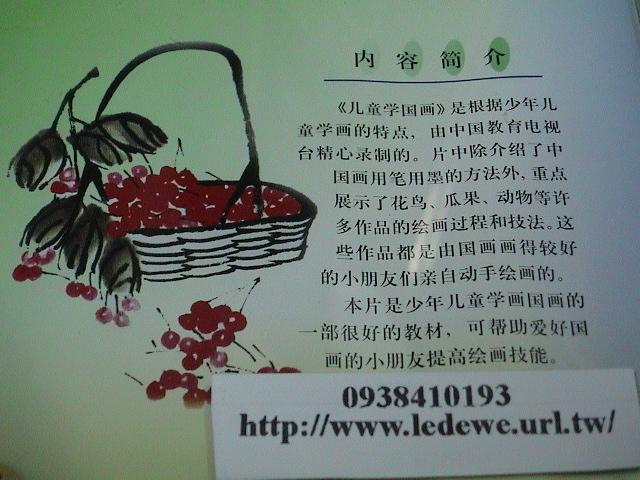 内容简介
《儿童学国画》是根据少年儿
童学画的特点，由中国教育电视
台精心录制的。片中除介绍了中
国画用笔用墨的方法外，重点
展示了花鸟、瓜果、动物等许
多作品的绘画过程和技法。这
些作品都是由国画画得较好
的小朋友们亲自动手绘画的。
本片是少年儿童学画国画的
一部很好的教材，可帮助爱好国
画的小朋友提高绘画技能。
0938410193
http://www.ledewe.url.tw/